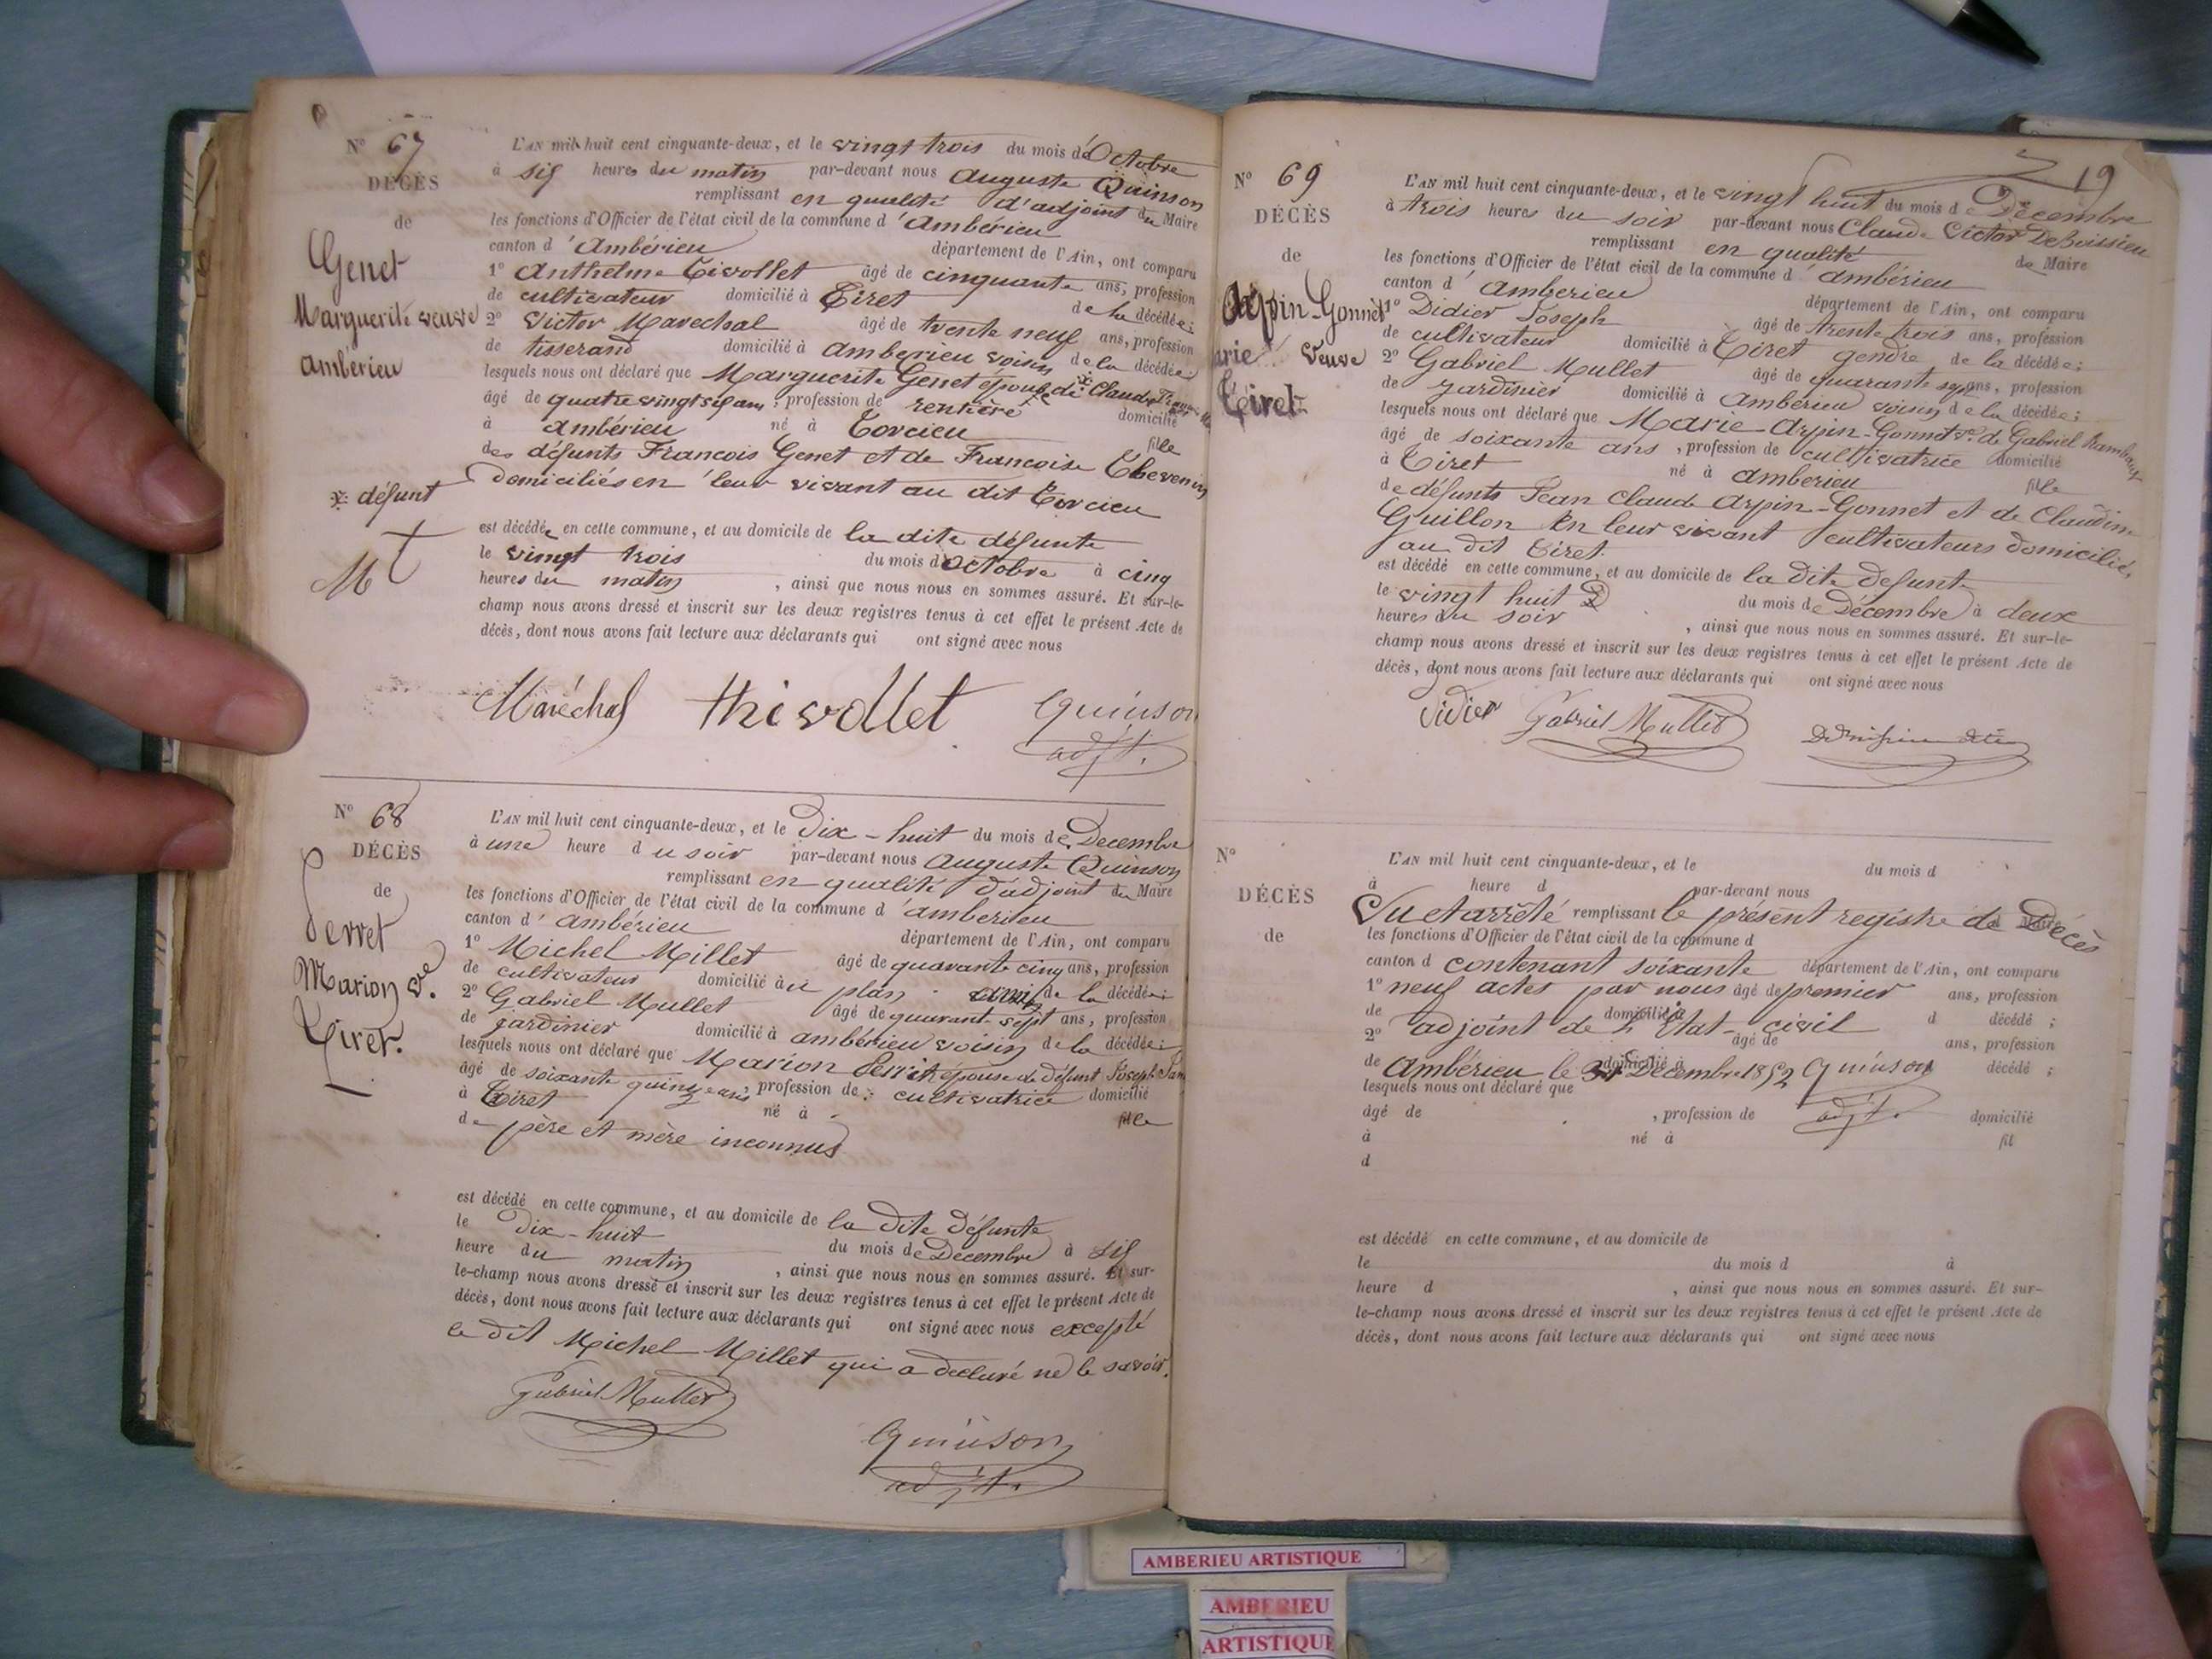 N° 67
DÉCÈS
de
Genet
Marguerite veuve
Ambérieu
L'AN mil huit cent cinquante-deux, et le vingt trois du mois d'Octobre
à six heures du matin par-devant nous Auguste Quinson
remplissant en qualité d'adjoint du Maire
les fonctions d'Officier de l'état civil de la commune d'Ambérieu
canton d'Ambérieu département de l'Ain, ont comparu
1° Anthelme Tivollet âgé de cinquante ans, profession
de cultivateur domicilié à Tiret de la décédée;
2° Victor Marechal âgé de trente neuf ans, profession
de tisserand domicilié à Amberieu voisin de la décédée;
lesquels nous ont déclaré que Marguerite Genet épouse de x Claude
âgé de quatre vingt six ans, profession de rentière domicilié
à Ambérieu né à Torcieu fille
des défunts Francois Genet et de Francoise Thevenin
domiciliés en leur vivant au dit Torcieu
x défunt
est décédée en cette commune, et au domicile de la dite défunte
le vingt trois du mois d'Octobre à cinq
heures du matin, ainsi que nous nous en sommes assuré. Et sur-le-
champ nous avons dressé et inscrit sur les deux registres tenus à cet effet le présent Acte de
décès, dont nous avons fait lecture aux déclarants qui ont signé avec nous
Maréchal thivollet Quinson
adjt.
N° 68
DÉCÈS
de
Perret
Marion ve.
Tiret.
L'AN mil huit cent cinquante-deux, et le Dix-huit du mois de Decembre
à une heure du soir par-devant nous Auguste Quinson
remplissant en qualité d'adjoint du Maire
les fonctions d'Officier de l'état civil de la commune d'amberieu
canton d'ambérieu département de l'Ain, ont comparu
1° Michel Millet âgé de quarante cinq ans, profession
de cultivateur domicilié au plan ami de la décédée;
2° Gabriel Mullet âgé de quarant-sept ans, profession
de jardinier domicilié à ambérieu voisin de la décédée;
lesquels nous ont déclaré que Marion Perret épouse de défunt Joseph
âgé de soixante quinze ans, profession de cultivatrice domicilié
à Tiret né à fille
de père et mère inconnus
est décédé en cette commune, et au domicile de la dite défunte
le Dix-huit du mois de Decembre à six
heure du matin, ainsi que nous nous en sommes assuré. Et sur-
le-champ nous avons dressé et inscrit sur les deux registres tenus à cet effet le présent Acte de
décès, dont nous avons fait lecture aux déclarants qui ont signé avec nous excepté
le dit Michel Millet qui a declaré ne le savoir.
Gabriel Mullet
Quinson
adjt.
19
N° 69
DÉCÈS
de
Arpin-Gonnet
arie Veuve
Tiret
L'AN mil huit cent cinquante-deux, et le vingt huit du mois de Décembre
à trois heures du soir par-devant nous Claude Victor DeBoissieu
remplissant en qualité de Maire
les fonctions d'Officier de l'état civil de la commune d'ambérieu
canton d'Amberieu département de l'Ain, ont comparu
1° Didier Joseph âgé de trente trois ans, profession
de cultivateur domicilié à Tiret gendre de la décédée;
2° Gabriel Mullet âgé de quarante sept ans, profession
de jardinier domicilié à Ambérieu voisin de la décédée;
lesquels nous ont déclaré que Marie Arpin-Gonnet ve. de Gabriel
âgé de soixante ans, profession de cultivatrice domicilié
à Tiret né à amberieu fille
de défunts Jean Claude Arpin-Gonnet et de Claudine
Guillon En leur vivant cultivateurs domiciliés
au dit Tiret
est décédé en cette commune, et au domicile de la dite defunte
le vingt huit du mois de Décembre à deux
heures du soir, ainsi que nous nous en sommes assuré. Et sur-le-
champ nous avons dressé et inscrit sur les deux registres tenus à cet effet le présent Acte de
décès, dont nous avons fait lecture aux déclarants qui ont signé avec nous
Didier Gabriel Mullet
N°
DÉCÈS
de
L'AN mil huit cent cinquante-deux, et le du mois d
à heure d par-devant nous
Vu et arrêté remplissant le présent registre de Décès
les fonctions d'Officier de l'état civil de la commune d
canton d contenant soixante département de l'Ain, ont comparu
1° neuf actes par nous âgé de premier ans, profession
de domicilié à d décédé ;
2° adjoint de l'État-civil âgé de ans, profession
de Ambérieu le 31 domicilié à Décembre 1852 Quinson décédé ;
lesquels nous ont déclaré que
âgé de , profession de adjt. domicilié
à né à fil
d
est décédé en cette commune, et au domicile de
le du mois d à
heure d , ainsi que nous nous en sommes assuré. Et sur-
le-champ nous avons dressé et inscrit sur les deux registres tenus à cet effet le présent Acte de
décès, dont nous avons fait lecture aux déclarants qui ont signé avec nous
AMBERIEU ARTISTIQUE
AMBERIEU
ARTISTIQUE